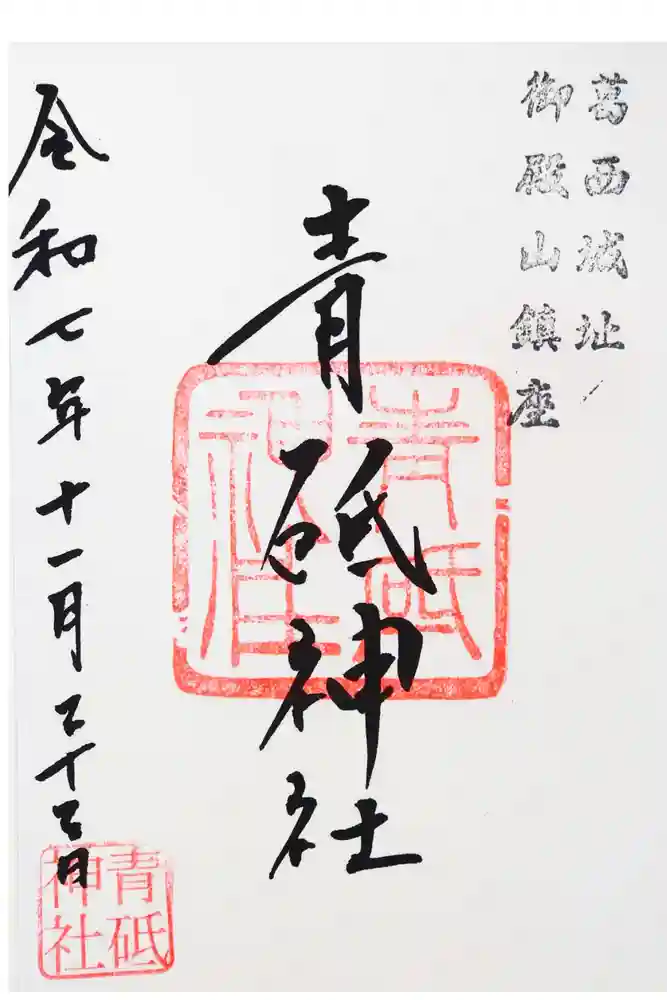 葛西城址
御殿山鎮座
青砥神社
青砥神社
令和七年十一月二十三日
青砥神社